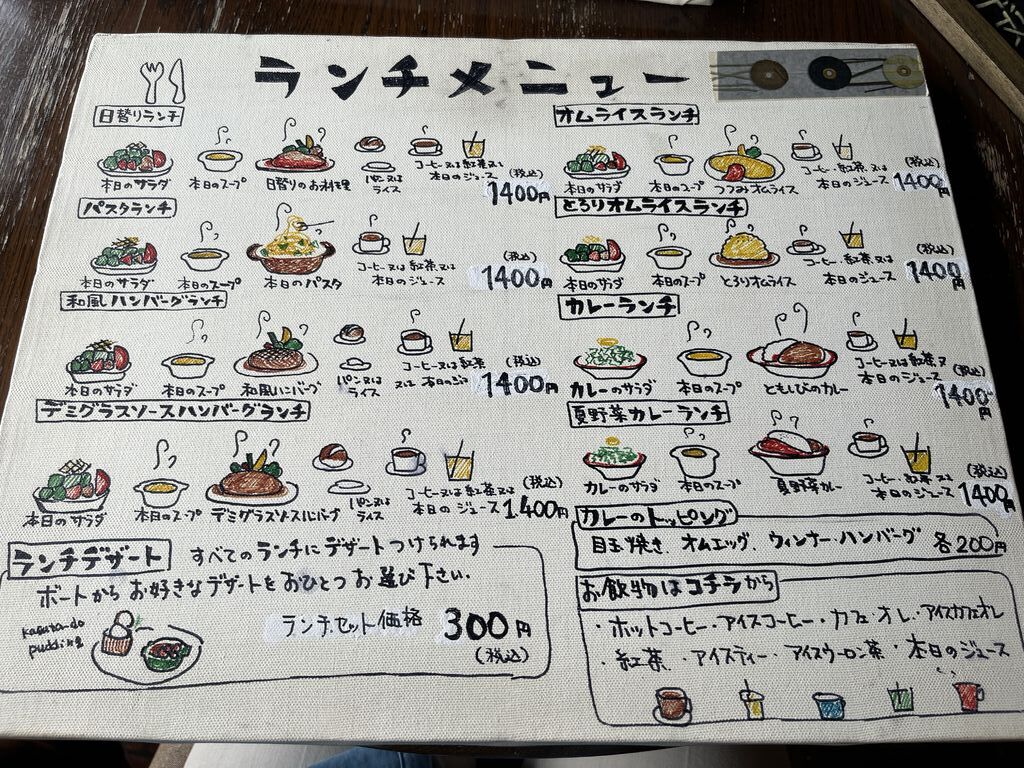 ランチメニュー
日替りランチ
本日のサラダ
本日のスープ
日替りのお料理
パン又は
ライス
コーヒー又は紅茶又は
本日のジュース
(税込)
1400円
パスタランチ
本日のサラダ
本日のスープ
本日のパスタ
コーヒー又は紅茶又は
本日のジュース
(税込)
1400円
和風ハンバーグランチ
本日のサラダ
本日のスープ
和風ハンバーグ
パン又は
ライス
コーヒー又は紅茶
又は本日のジュ
(税込)
1400円
デミグラスソースハンバーグランチ
本日のサラダ
本日のスープ
デミグラスソースハンバーグ
パン又は
ライス
コーヒー又は紅茶又は
本日のジュース
(税込)
1400円
ランチデザート
すべてのランチにデザートつけられます
ボートからお好きなデザートをおひとつお選び下さい.
ランチセット価格 300円
(税込)
オムライスランチ
本日のサラダ
本日のスープ
つつみオムライス
コーヒー又は紅茶又は
本日のジュース
(税込)
1400円
とろりオムライスランチ
本日のサラダ
本日のスープ
とろりオムライス
コーヒー又は紅茶又は
本日のジュース
(税込)
1400円
カレーランチ
カレーのサラダ
本日のスープ
ともしびのカレー
コーヒー又は紅茶又
本日のジュース
(税込)
1400円
夏野菜カレーランチ
カレーのサラダ
本日のスープ
夏野菜カレー
コーヒー又は紅茶又は
本日のジュース
(税込)
1400円
カレーのトッピング
目玉焼き、オムエッグ、ウィンナー・ハンバーグ 各200円
お飲物はコチラから
・ホットコーヒー・アイスコーヒー・カフェ・オレ・アイスカフェオレ
・紅茶 ・アイスティー・アイスウーロン茶・本日のジュース